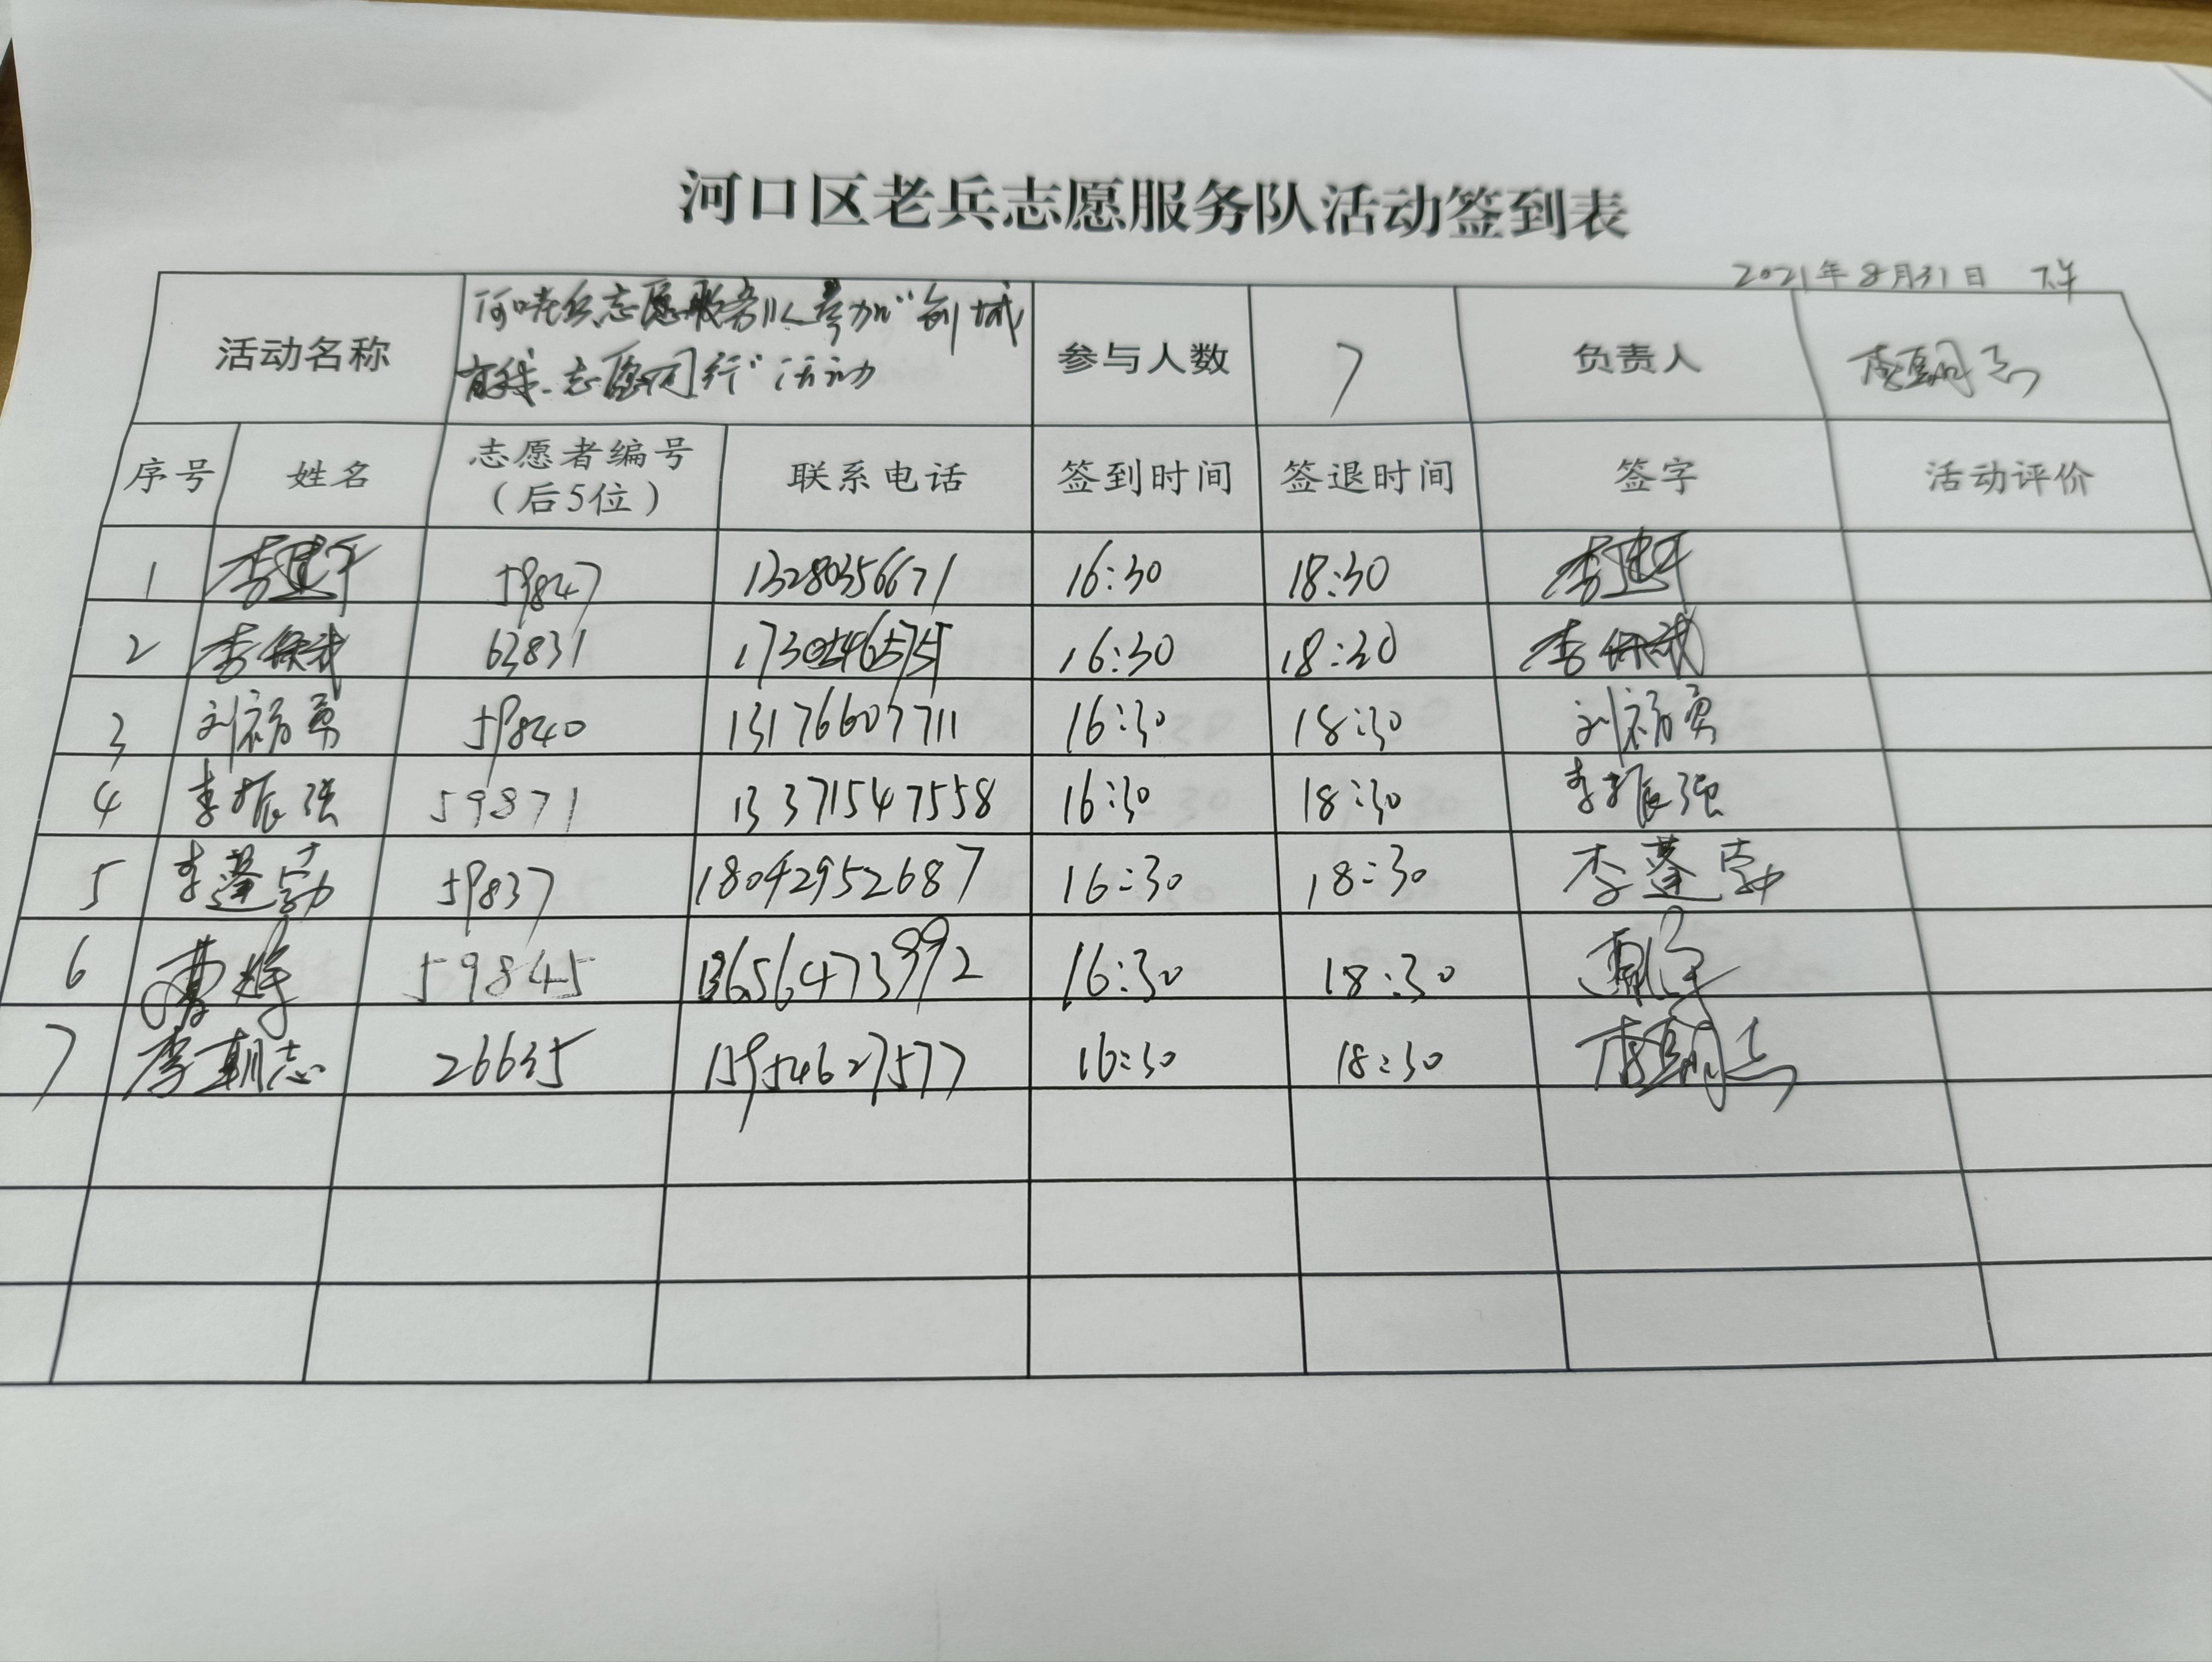 河口区老兵志愿服务队活动签到表
2021年8月31日 下午
活动名称 河口老兵志愿服务队参加"创城 参与人数 7 负责人 李朝志
有我、志愿同行"活动
序号 姓名 志愿者编号 联系电话 签到时间 签退时间 签字 活动评价
（后5位）
1 李建平 59847 13280356671 16:30 18:30 李建平
2 李保武 63831 17305465751 16:30 18:30 李保武
3 刘福勇 59840 13176607711 16:30 18:30 刘福勇
4 李振强 59871 13371547558 16:30 18:30 李振强
5 李蓬勃 59837 18042952687 16:30 18:30 李蓬勃
6 59845 13656473992 16:30 18:30
7 李朝志 26635 15954627577 16:30 18:30 李朝志